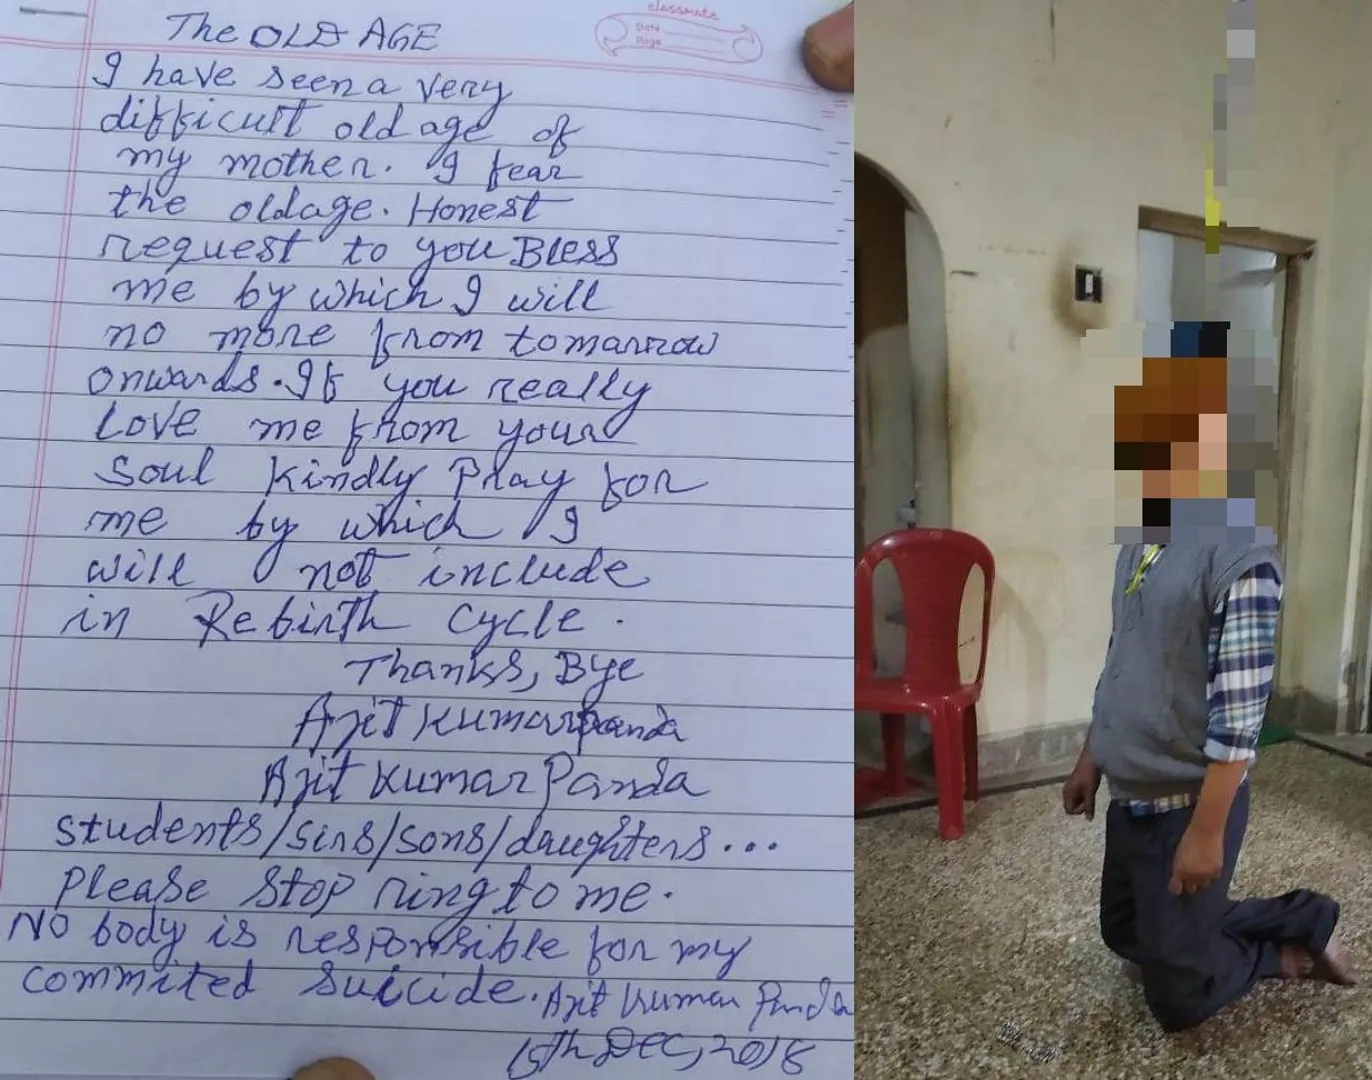 classmate
Date
Page
The OLD AGE
I have seen a very
difficult old age of
my mother. I fear
the oldage. Honest
request to you Bless
me by which I will
no more from tomarrow
onwards. If you really
Love me from your
Soul Kindly Pray for
me by which I
will not include
in Rebirth Cycle.
Thanks, Bye
Ajit Kumar Panda
Ajit Kumar Panda
students/sirs/sons/daughters...
Please Stop ring to me.
No body is responsible for my
commited Suicide. Ajit Kumar Panda
15th DEC, 2018